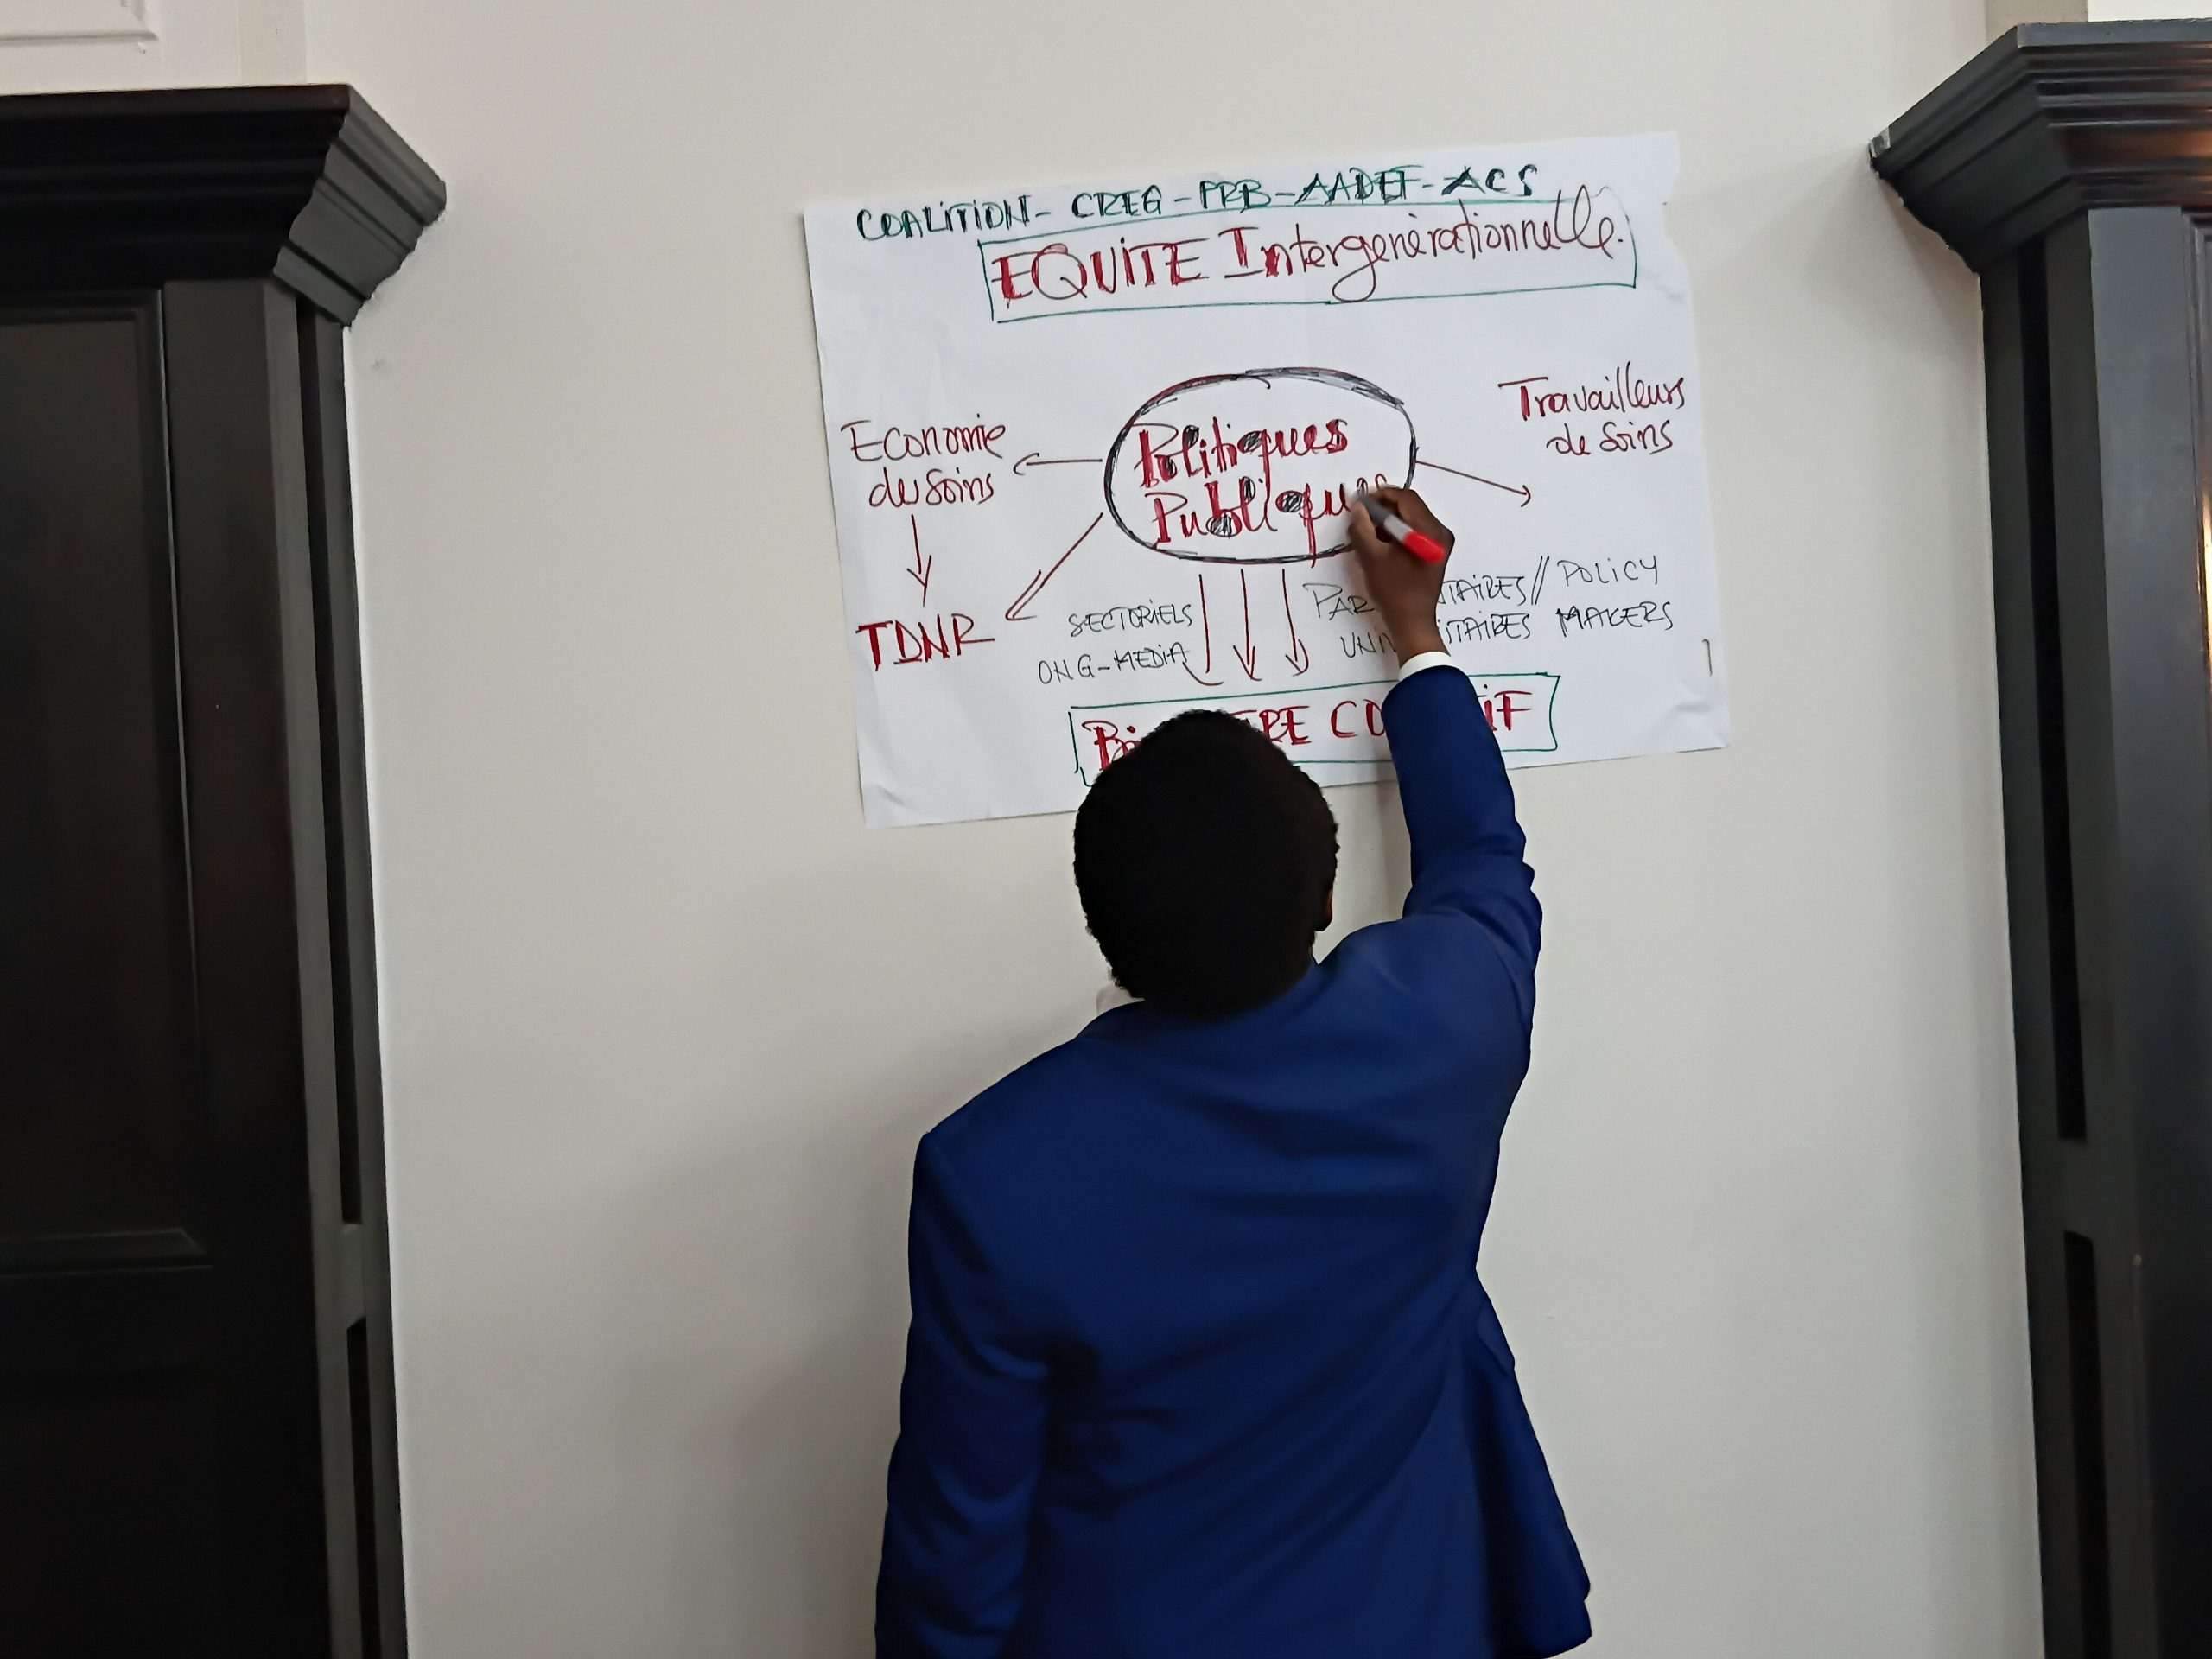 COALITION - CREG - PRB - AADEF - ACS
EQUITE Intergenérationnelle.
Economie
de soins
Politiques
Publiques
Travailleurs
de soins
TDNR
SECTORIELS
ONG-MEDIA
POLICY
MAKERS